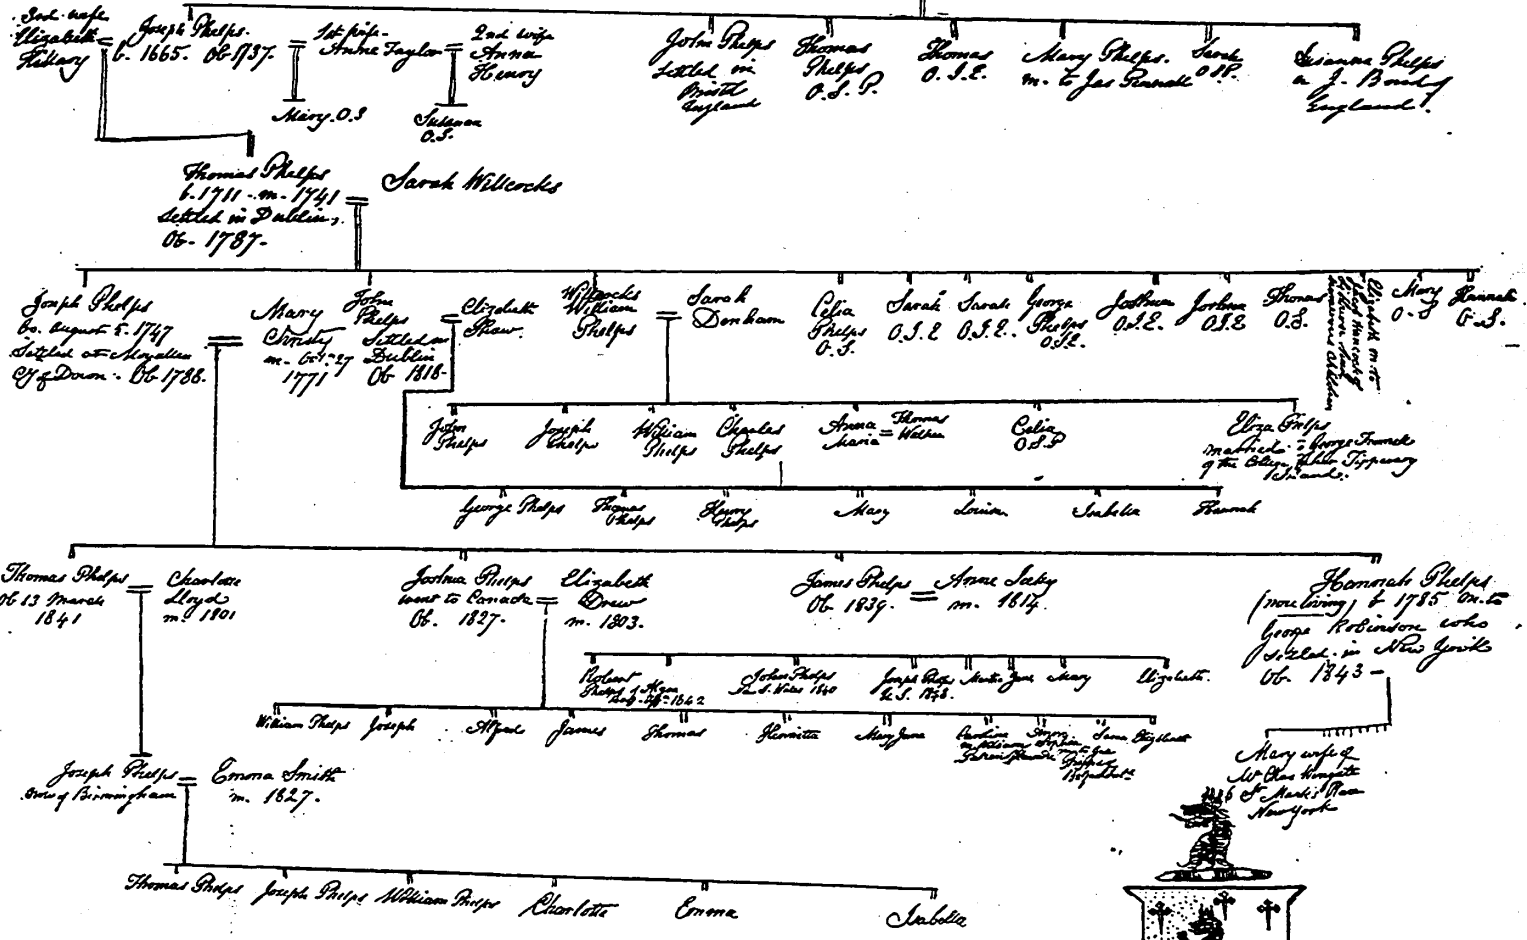 3rd wife
Elizabeth
Joseph Phelps.
b. 1665. Ob 1737.
1st wife
Anne Taylor
2nd wife
Anna
Henry
Mary. O.S
Susanna
O.S.
John Phelps
settled in
England
Thomas
Phelps
O.S.P.
Thomas
O.I.E.
Mary Phelps.
m. to Jas
Sarah
OSP.
Susanna Phelps
J. Bond of
England.
Thomas Phelps
b. 1711 - m. 1741
settled in Dublin,
Ob. 1787.
Sarah Willcocks
Joseph Phelps
bo. August 5. 1747
Settled at Moyallen
Cy of Down. Ob 1788.
Mary
Christy
1771
John
Phelps
Settled in
Dublin
Ob 1818.
Elizabeth
Shaw.
Willcocks
William
Phelps
Sarah
Denham
Celia
Phelps
O.S.
Sarah
O.I.E
Sarah
O.I.E.
George
Phelps
O.I.E.
Joshua
O.I.E.
Joshua
O.I.E
Thomas
O.S.
Elizabeth m. to
Jacob Hancock of
Lisburn had
numerous children
Mary
O.S
Hannah
O.S.
John
Phelps
Joseph
Phelps
William
Phelps
Charles
Phelps
Anna
Maria
Thomas
Walker
Celia
O.S.P
Eliza Phelps
married George
of the Tipperary
Ireland.
George Phelps
Thomas
Phelps
Henry
Phelps
Mary
Louisa
Isabella
Hannah
Thomas Phelps
Ob 13 March
1841
Charlotte
Lloyd
m. 1801
Joshua Phelps
went to Canada
Ob. 1827.
Elizabeth
Drew
m. 1803.
James Phelps
Ob. 1839.
Anne
m. 1814.
Hannah Phelps
(now living) b 1785 m. to
George Robinson who
settled in New York
Ob. 1843 -
Robert
Phelps of
1842
John Phelps
1840
Joseph Phelps
Martha
Jane
Mary
Elizabeth.
William Phelps
Joseph
Alfred
James
Thomas
Henrietta
Mary Jane
Caroline
Sophia
Elizabeth
Joseph Phelps
now of Birmingham
Emma Smith
m. 1827.
Mary wife of
Mr Chas Wingate
St Mark's Place
New York
Thomas Phelps
Joseph Phelps
William Phelps
Charlotte
Emma
Isabella